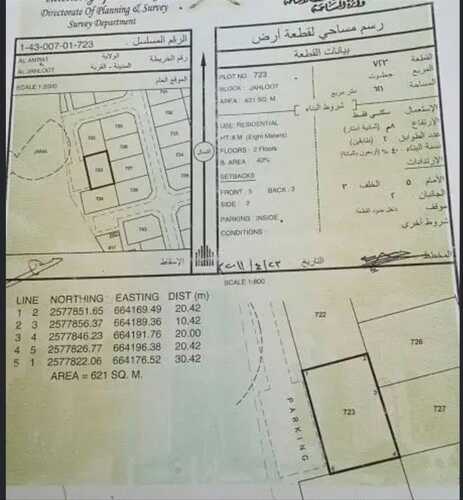 Directorate of Planning & Survey
Survey Department
1-43-007-01-723
الرقم المسلسل
AL AMRAT
الولاية
رقم الخريطة
AL JAHLOOT
المدينة - القرية
SCALE 1:5000
الموقع العام
رسم مساحي لقطعة أرض
بيانات القطعة
PLOT NO : 723
القطعة ٧٢٣
BLOCK : JAHLOOT
المربع
AREA : 621 SQ. M.
المساحة ٦٢١ متر مربع
شروط البناء
USE: RESIDENTIAL
الإستعمال سكني فقط
HT:8.M (Eight Meters)
الإرتفاع ٨م (ثمانية أمتار)
FLOORS : 2 Floors
عدد الطوابق ٢ (طابقين)
B. AREA 40%
نسبة البناء ٤٠٪
SETBACKS
الإرتدادات
FRONT : 5 BACK : 3
الأمام ٥ الخلف ٣
SIDE : 2
الجانبان ٢
PARKING : INSIDE
موقف داخل حدود القطعة
CONDITIONS :
شروط اخرى
الإسقاط
التاريخ
المخطط
SCALE 1:800
LINE NORTHING EASTING DIST (m)
1 2 2577851.65 664169.49 20.42
2 3 2577856.37 664189.36 10.42
3 4 2577846.23 664191.76 20.00
4 5 2577826.77 664196.38 20.42
5 1 2577822.06 664176.52 30.42
AREA = 621 SQ. M.
722
726
723
727
PARKING